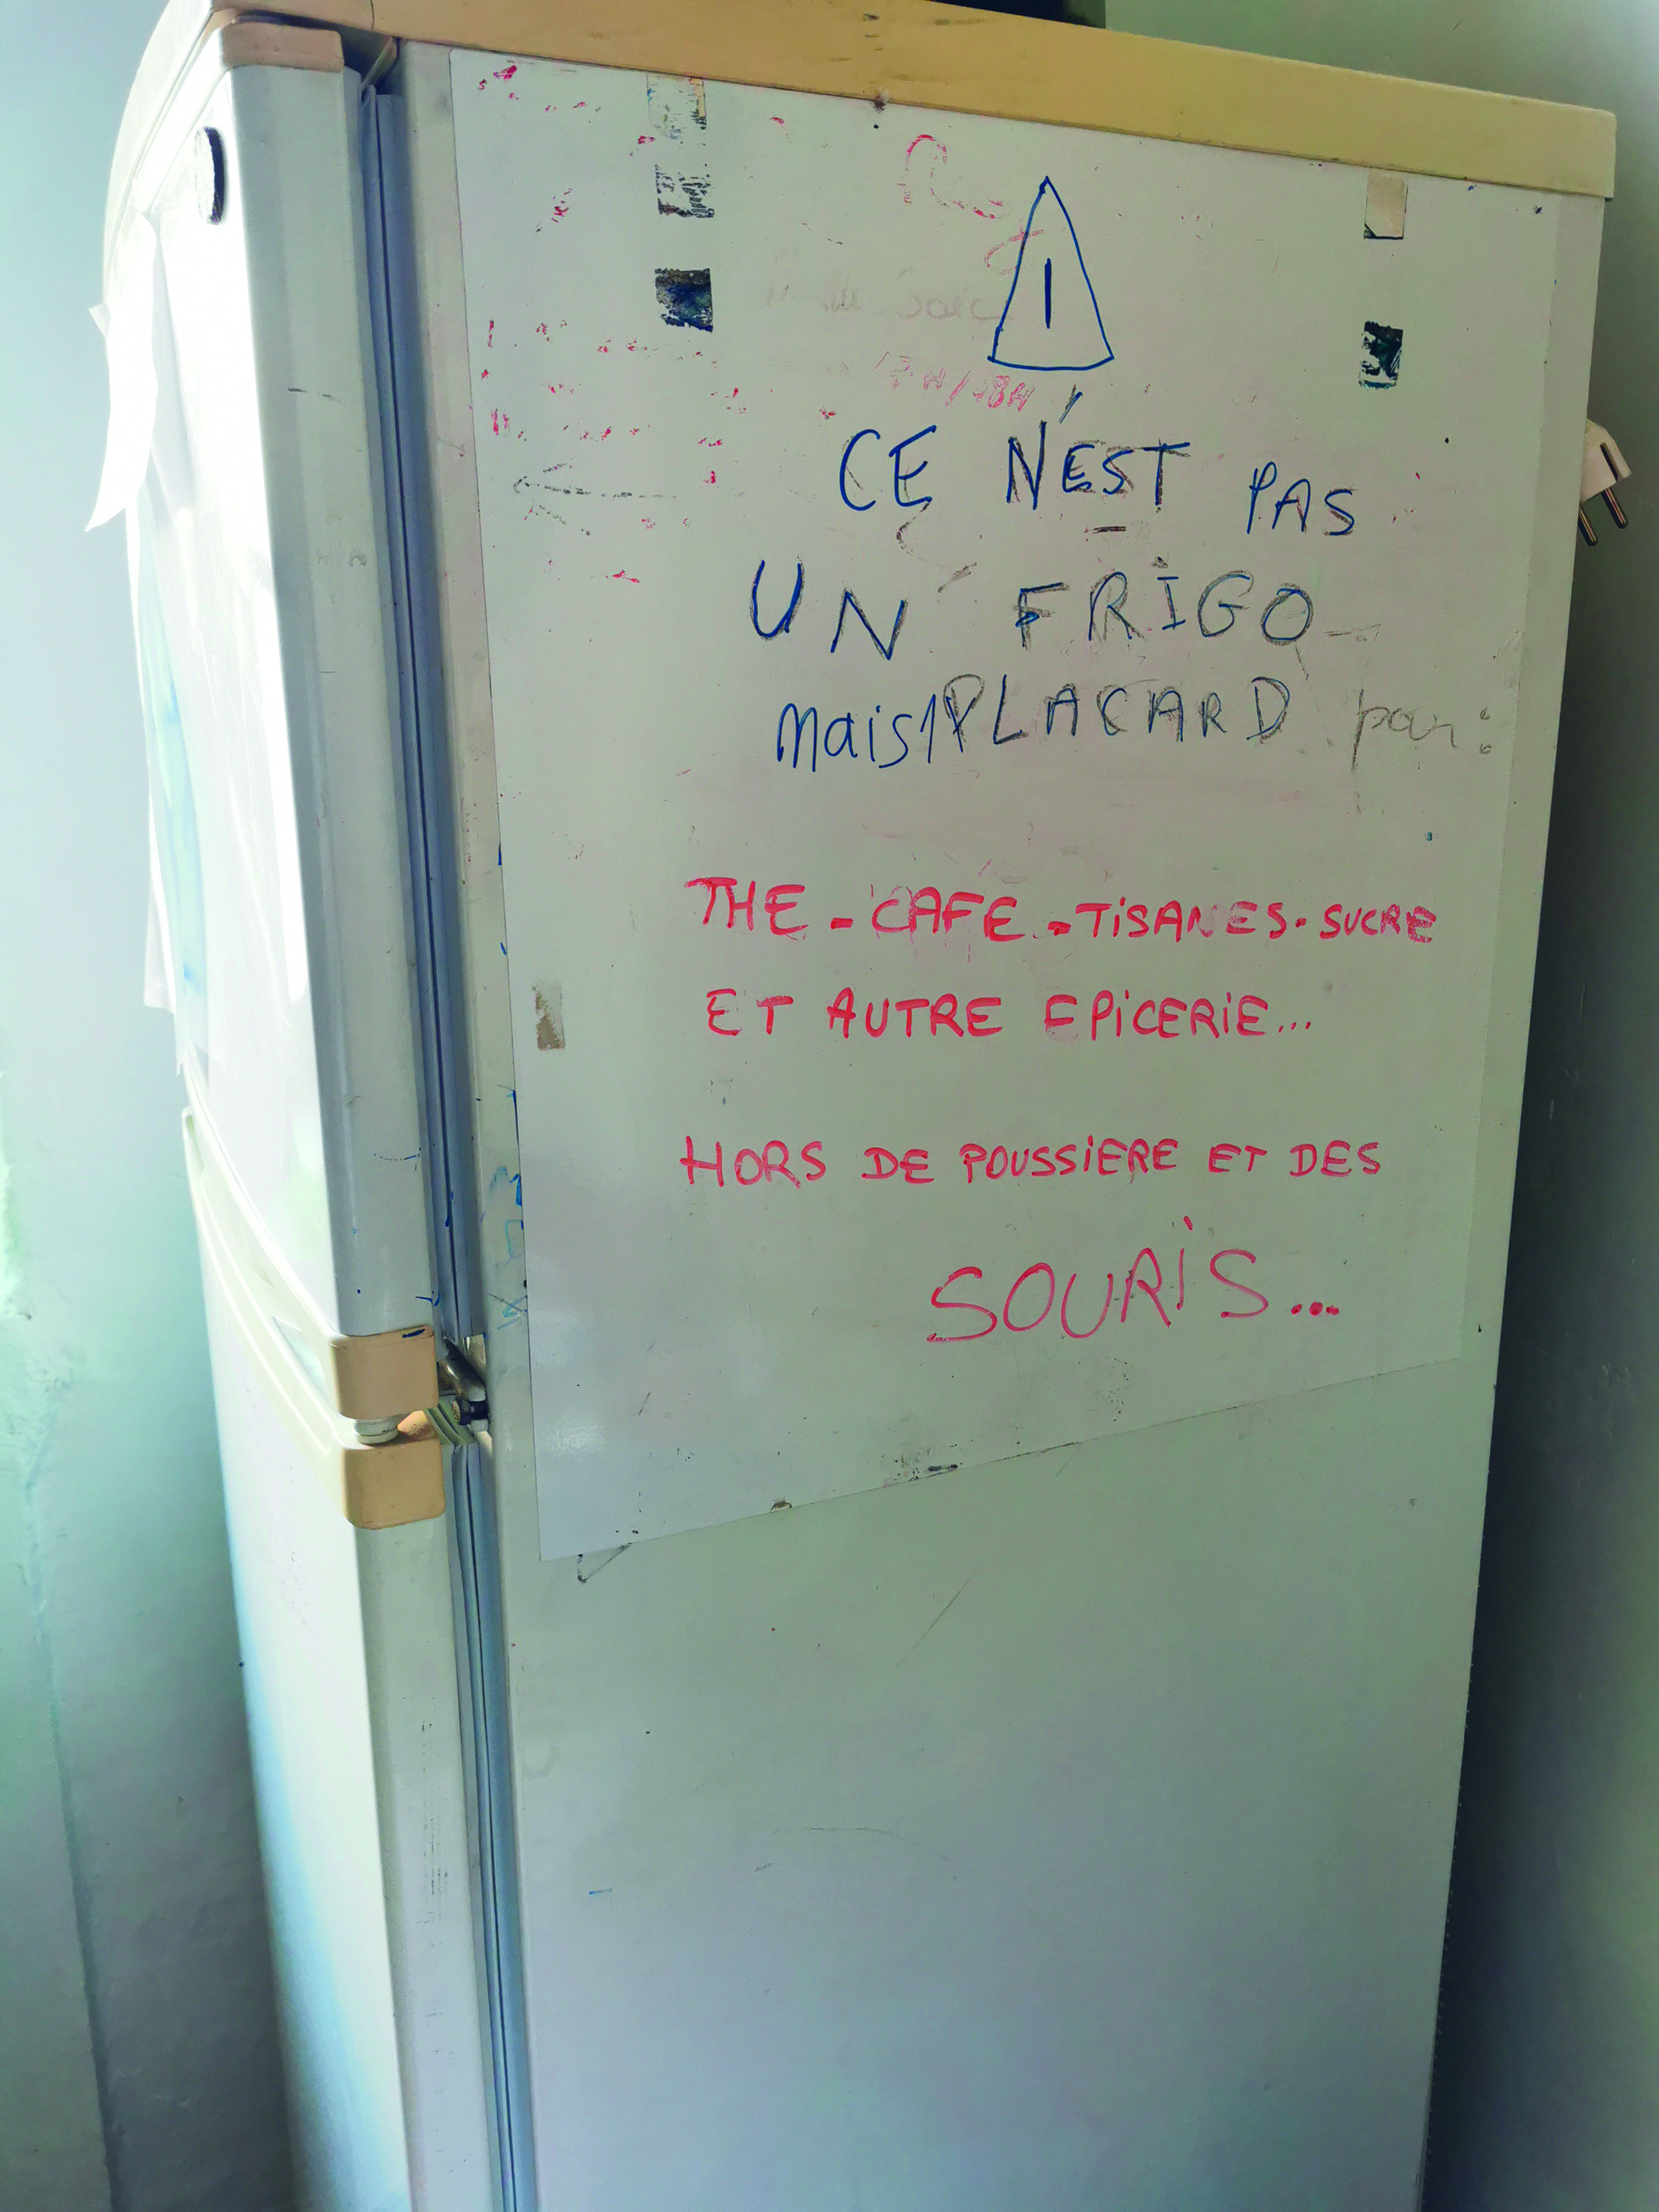 17H/18H
CE N'EST PAS
UN FRIGO
mais 1 PLACARD pour :
THE - CAFE - TISANES - SUCRE
ET AUTRE EPICERIE...
HORS DE POUSSIERE ET DES
SOURIS...